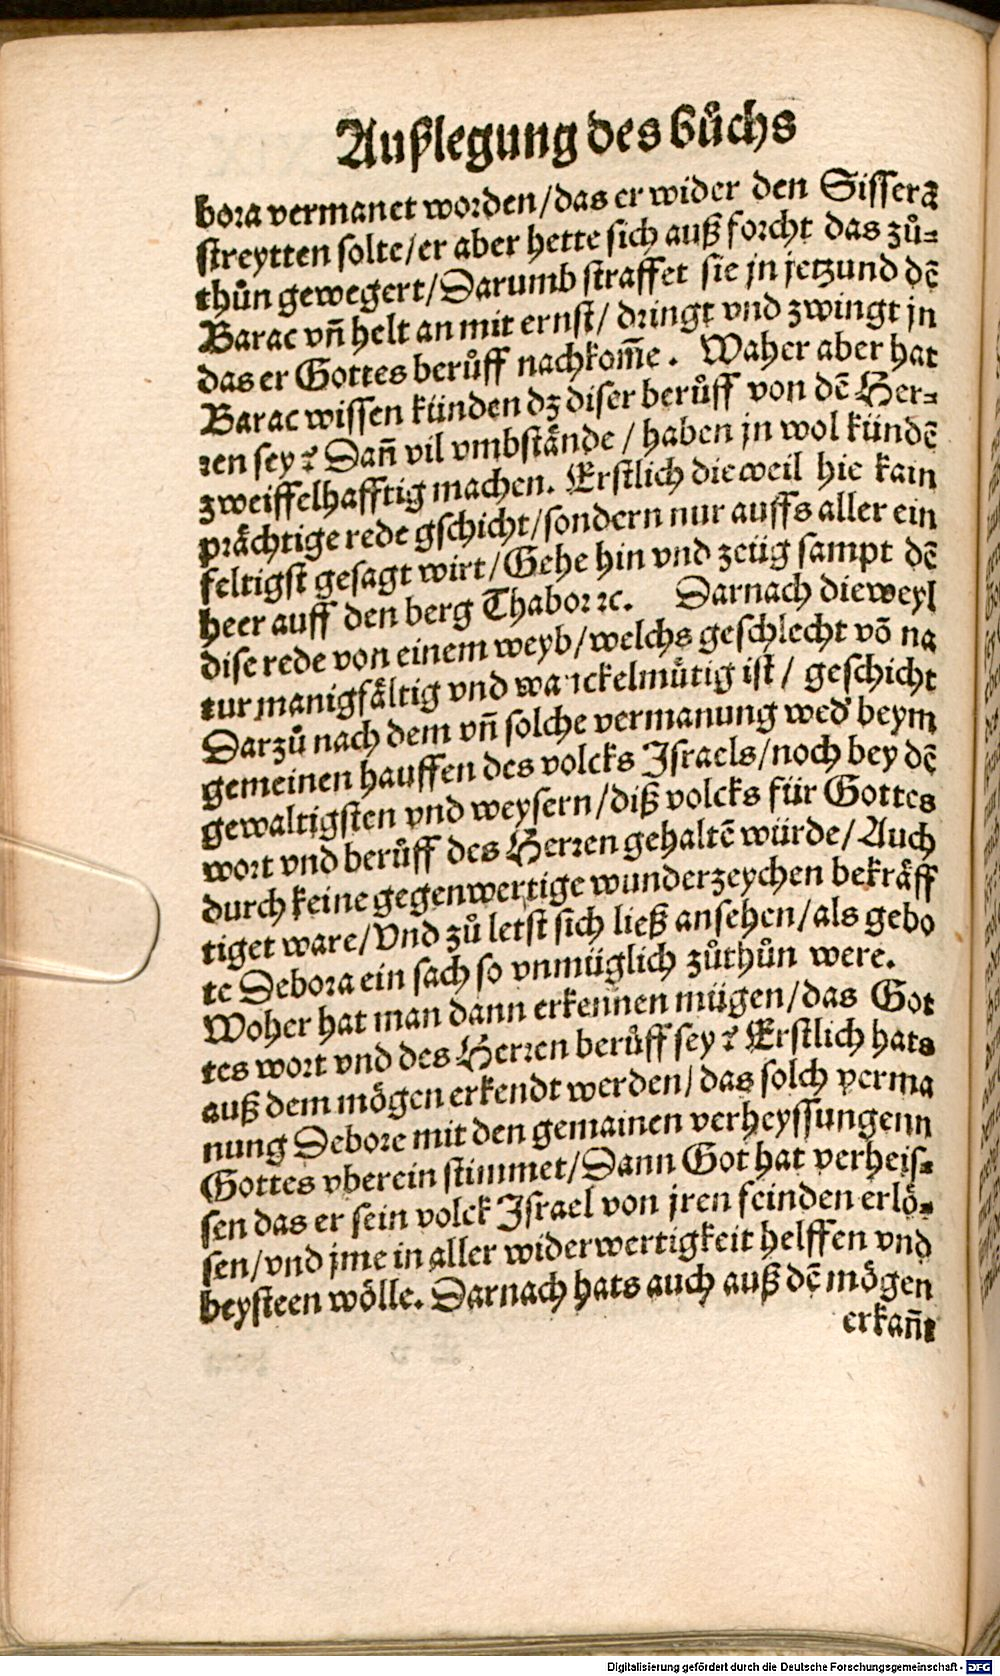 Außlegung des bůchs
bora vermanet worden/das er wider den Sissera
streytten solte/er aber hette sich auß forcht das zů-
thůn gewegert/Darumb straffet sie jn jetzund dē
Barac vn̄ helt an mit ernst/ dringt vnd zwingt jn
das er Gottes berůff nachkom̄e. Waher aber hat
Barac wissen künden dz diser berůff von dē Her-
ren sey? Dan̄ vil vmbstånde / haben jn wol kündē
zweiffelhafftig machen. Erstlich dieweil hie kain
pråchtige rede gschicht/sondern nur auffs aller ein
feltigst gesagt wirt/Gehe hin vnd zeüg sampt dē
heer auff den berg Thabor ꝛc. Darnach dieweyl
dise rede von einem weyb/welchs geschlecht vō na
tur manigfåltig vnd wanckelmůtig ist/ geschicht
Darzů nach dem vn̄ solche vermanung wed' beym
gemeinen hauffen des volcks Israels/noch bey dē
gewaltigsten vnd weysern/diß volcks für Gottes
wort vnd berůff des Herren gehaltē würde/Auch
durch keine gegenwertige wunderzeychen bekråff
tiget ware/Vnd zů letst sich ließ ansehen/als gebo
te Debora ein sach so vnmüglich zůthůn were.
Woher hat man dann erkennen mügen/das Got
tes wort vnd des Herren berůff sey? Erstlich hats
auß dem mögen erkendt werden/das solch verma
nung Debore mit den gemainen verheyssungenn
Gottes vberein stimmet/Dann Got hat verheis-
sen das er sein volck Israel von jren feinden erlö-
sen/vnd jme in aller widerwertigkeit helffen vnd
beysteen wölle. Darnach hats auch auß dē mögen
erkan̄t
Digitalisierung gefördert durch die Deutsche Forschungsgemeinschaft - DFG